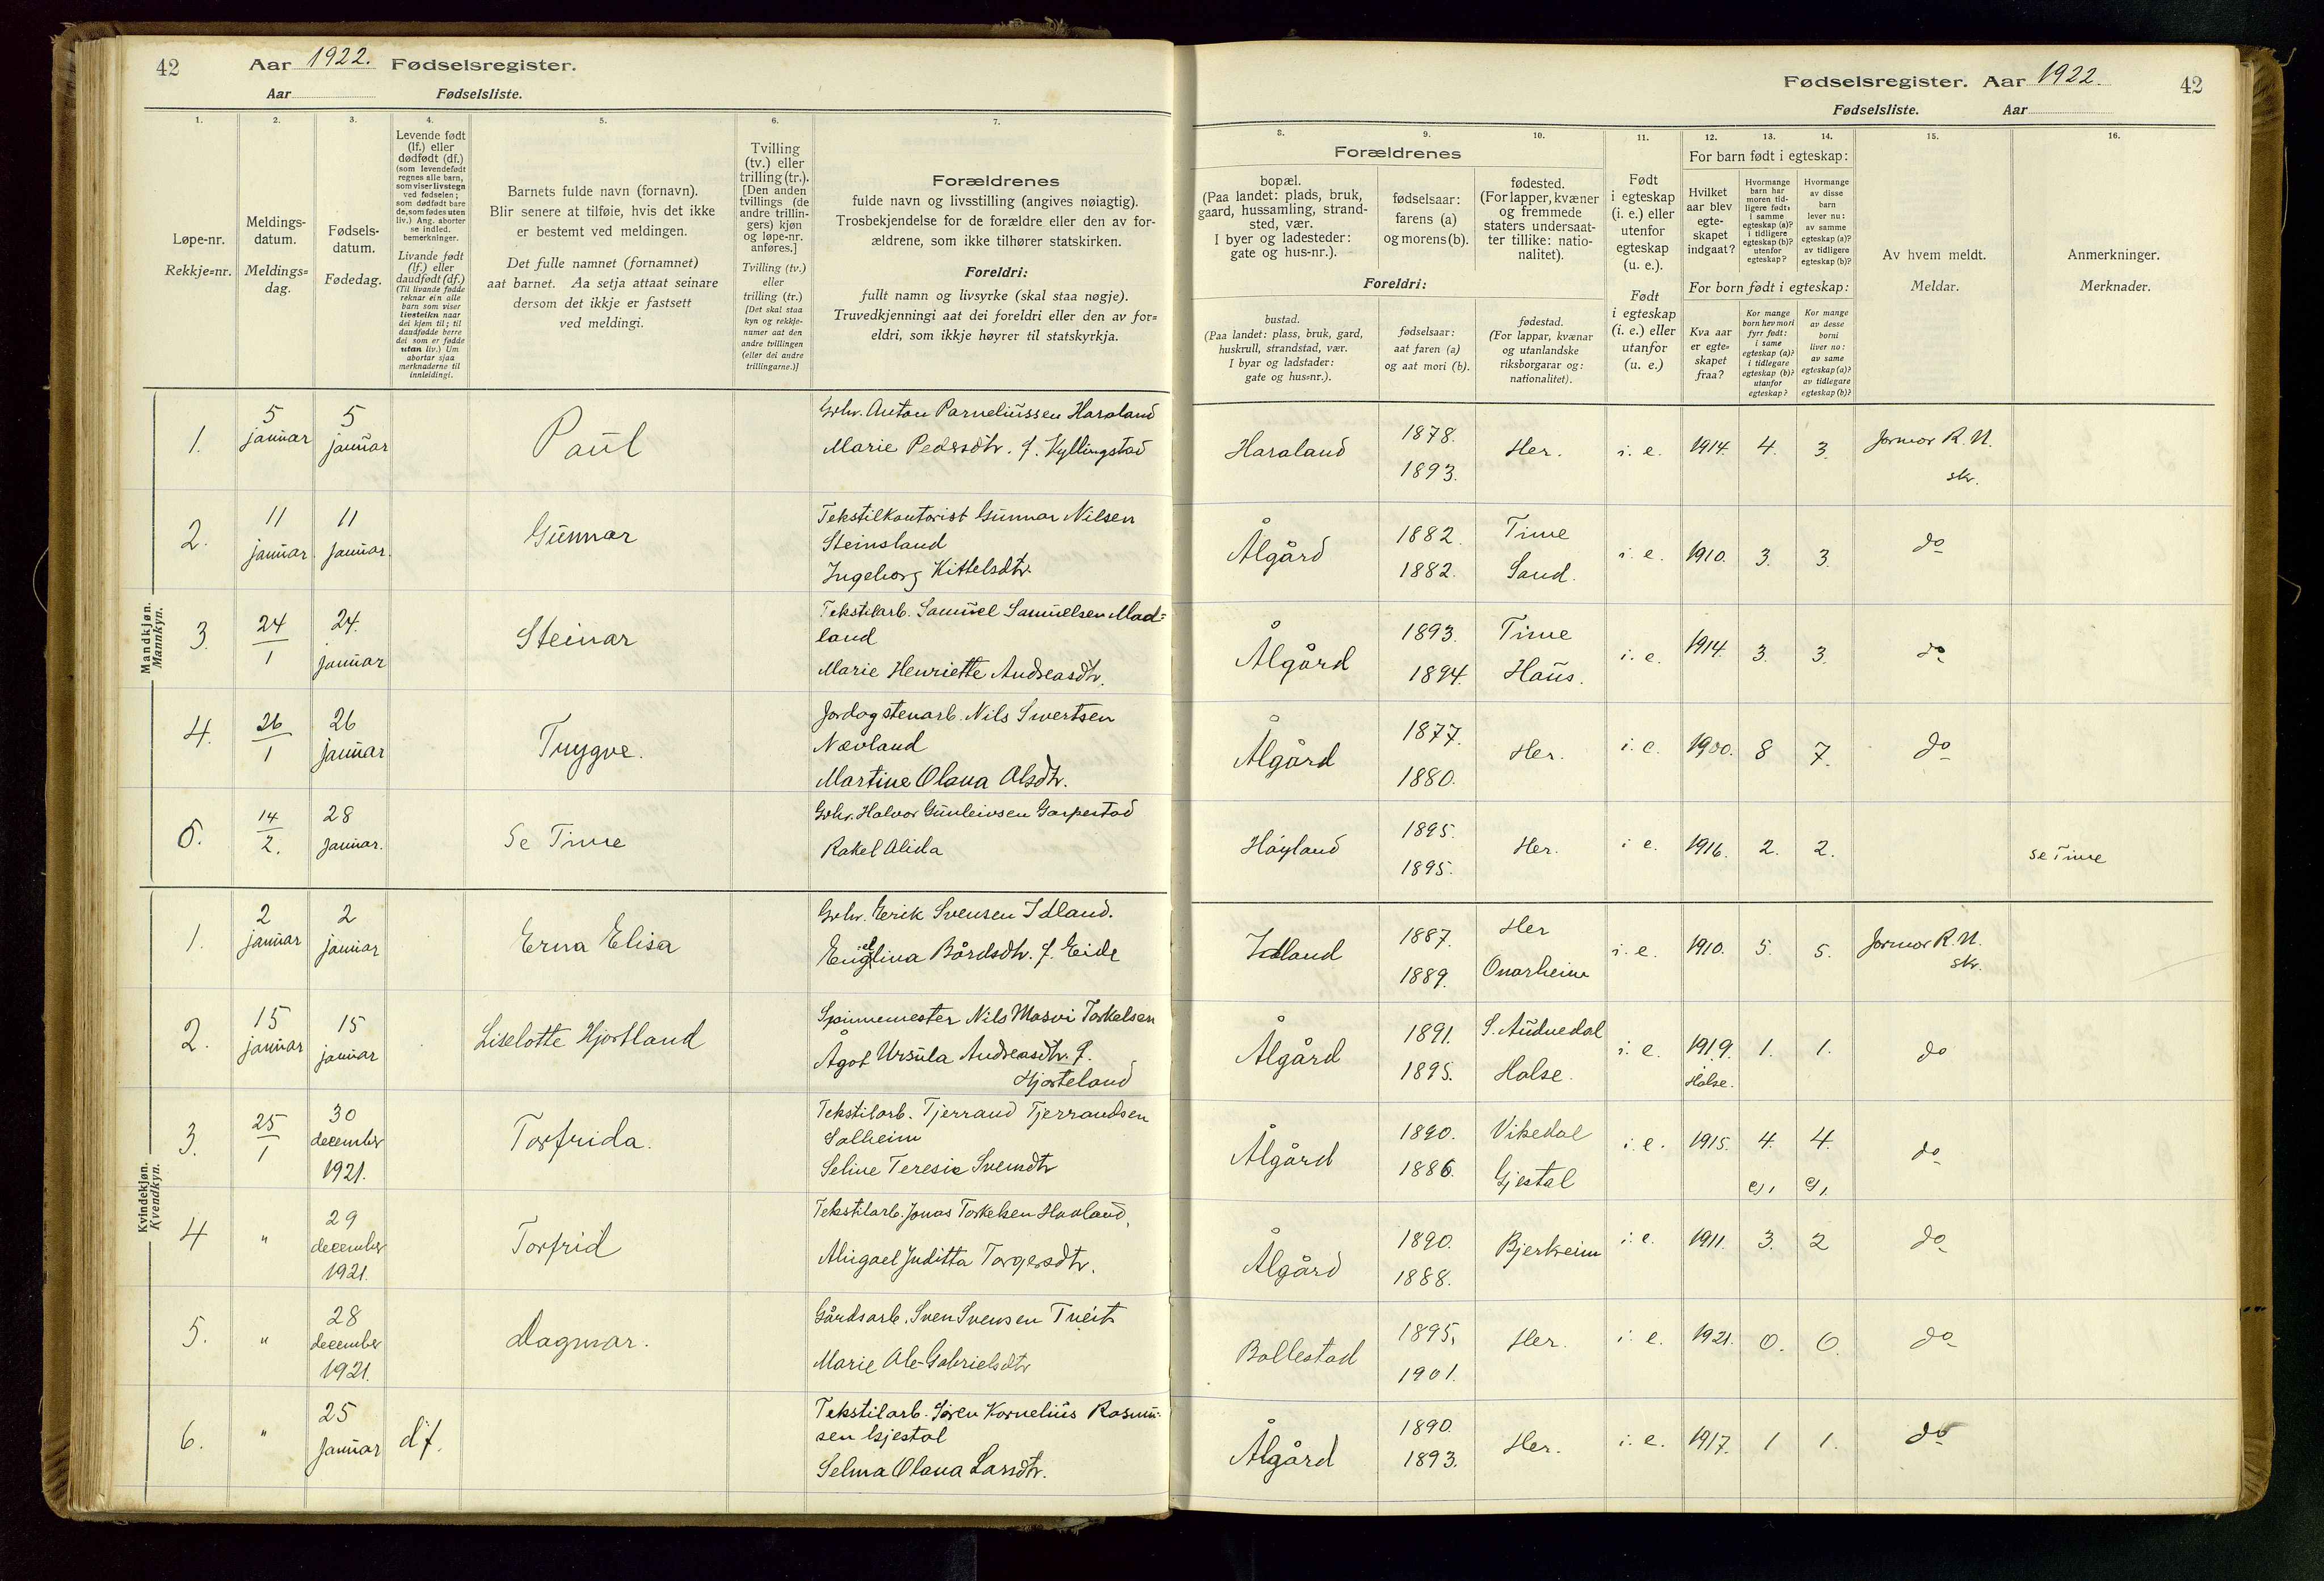 42 Aar 1922. Fødselsregister.
Aar Fødselsliste.
Fødselsregister. Aar 1922. 42
Fødselsliste. Aar
1.
Løpe-nr.
Rekkje=nr.
2.
Meldings-
datum.
Meldings=
dag.
3.
Fødsels-
datum.
Fødedag.
4.
Levende født
(lf.) eller
dødfødt (df.)
(som levendefødt
regnes alle barn,
som viser livstegn
ved fødselen;
som dødfødt bare
de, som fødes uten
liv.) Ang. aborter
se indled.
bemerkninger.
Livande født
(lf.) eller
daudfødt (df.)
(Til livande fødde
reknar ein alle
born som viser
livsteikn naar
dei kjem til; til
daudfødde berre
dei som er fødde
utan liv.) Um
abortar sjaa
merknaderne til
innleidingi.
5.
Barnets fulde navn (fornavn).
Blir senere at tilføie, hvis det ikke
er bestemt ved meldingen.
Det fulle namnet (fornamnet)
aat barnet. Aa setja attaat seinare
dersom det ikkje er fastsett
ved meldingi.
6.
Tvilling
(tv.) eller
trilling (tr.).
[Den anden
tvillings (de
andre trillin-
gers) kjøn
og løpe-nr.
anføres.]
Tvilling (tv.)
eller
trilling (tr.)
[Det skal staa
kyn og rekkje-
numer aat den
andre tvillingen
(eller dei andre
trillingarne.)]
7.
Forældrenes
fulde navn og livsstilling (angives nøiagtig).
Trosbekjendelse for de forældre eller den av for-
ældrene, som ikke tilhører statskirken.
Foreldri:
fullt namn og livsyrke (skal staa nøgje).
Truvedkjenningi aat dei foreldri eller den av for=
eldri, som ikkje høyrer til statskyrkja.
8.
Forældrenes
bopæl.
(Paa landet: plads, bruk,
gaard, hussamling, strand-
sted, vær.
I byer og ladesteder:
gate og hus-nr.).
Foreldri:
bustad.
(Paa landet: plass, bruk, gard,
huskrull, strandstad, vær.
I byar og ladstader:
gate og hus=nr.).
9.
fødselsaar:
farens (a)
og morens (b).
fødselsaar:
aat faren (a)
og aat mori (b).
10.
fødested.
(For lapper, kvæner
og fremmede
staters undersaat-
ter tillike: natio-
nalitet).
fødestad.
(For lappar, kvænar
og utanlandske
riksborgarar og:
nationalitet).
11.
Født
i egteskap
(i. e.) eller
utenfor
egteskap
(u. e.).
Født
i egteskap
(i. e.) eller
utanfor
(u. e.)
12. 13. 14.
For barn født i egteskap:
Hvilket
aar blev
egte-
skapet
indgaat?
Hvormange
barn har
moren tid-
ligere født:
i samme
egteskap (a)?
i tidligere
egteskap (b)?
utenfor
egteskap?
Hvormange
av disse
barn
lever nu:
av samme
egteskap (a)?
av tidligere
egteskap (b)?
For born født i egteskap:
Kva aar
er egte=
skapet
fraa?
Kor mange
born hev mori
fyrr født:
i same
egteskap (a)?
i tidlegare
egteskap (b)?
utanfor
egteskap?
Kor mange
av desse
borni
liver no:
av same
egteskap (a)?
av tidlegare
egteskap (b)?
15.
Av hvem meldt.
Meldar.
16.
Anmerkninger.
Merknader.
Mandkjøn.
Mannkyn.
1. 5 januar 5 januar Paul
Grbr. Anton Parneliussen Haraland
Marie Pedersdtr. f. Kyllingstad
Haraland 1878. 1893. Her. i. e. 1914. 4. 3. Jormor R. N. skr.
2. 11 januar. 11 januar. Gunnar
Tekstilkontorist Gunnar Nilsen
Steinsland
Ingeborg Kittelsdtr.
Ålgård 1882. 1882. Time Sand. i. e. 1910. 3. 3. do
3. 24/1 24. januar Steinar
Tekstilarb. Samuel Samuelsen Mad=
land
Marie Henriette Andreasdtr.
Ålgård 1893. 1894. Time Haus. i. e. 1914. 3. 3. do
4. 26/1 26 januar Trygve.
Jordog stenarb. Nils Sivertsen
Nævland
Martine Olava Olsdtr.
Ålgård 1877. 1880. Her. i. e. 1900. 8 7. do
5. 14/2. 28 januar. Se Time
Grbr. Halvor Gunleivsen Garpestad
Rakel Alida
Høyland 1895. 1895. Her. i e. 1916. 2. 2. se Time
Kvindekjøn.
Kvendkyn.
1. 2 januar 2 januar Erna Elisa
Grbr. Eerik Svensen Idland.
Engelina Bårdsdtr. f. Eide
Idland 1887. 1889. Her Onarheim i. e. 1910. 5. 5. Jormor R. N. skr.
2. 15 januar 15 januar Liselotte Hjortland
Spinnemester Nils Masvi Torkelsen
Ågot Ursula Andreasdtr. f.
Hjorteland
Ålgård 1891. 1895. S. Audnedal Halse. i. e. 1919. Halse. 1. 1. do
3. 25/1 30 december 1921. Torfrida.
Tekstilarb. Tjerrand Tjerrandsen
Solheim
Seline Teresie Svendtr
Ålgård 1890. 1886. Vikedal Gjestal i. e. 1915. 4. 4. do
4 " 29 december 1921. Torfrid
Tekstilarb. Jonas Torkelsen Hovland,
Abigael Juditta Torgersdtr.
Ålgård 1890. 1888. Bjerkreim i. e. 1911. 3. 2 do
5. " 28 december 1921. Dagmar.
Gårdsarb. Sven Svensen Tveit
Marie Ole-Gabrielsdtr
Bollestad 1895. 1901. Her. i. e. 1921. 0. 0. do
6. " 25 januar df.
Tekstilarb. Søren Kornelius Rasmu-
sen Gjestal
Selma Olava Larsdtr.
Ålgård 1890. 1893. Her. i. e. 1917. 1 1. do